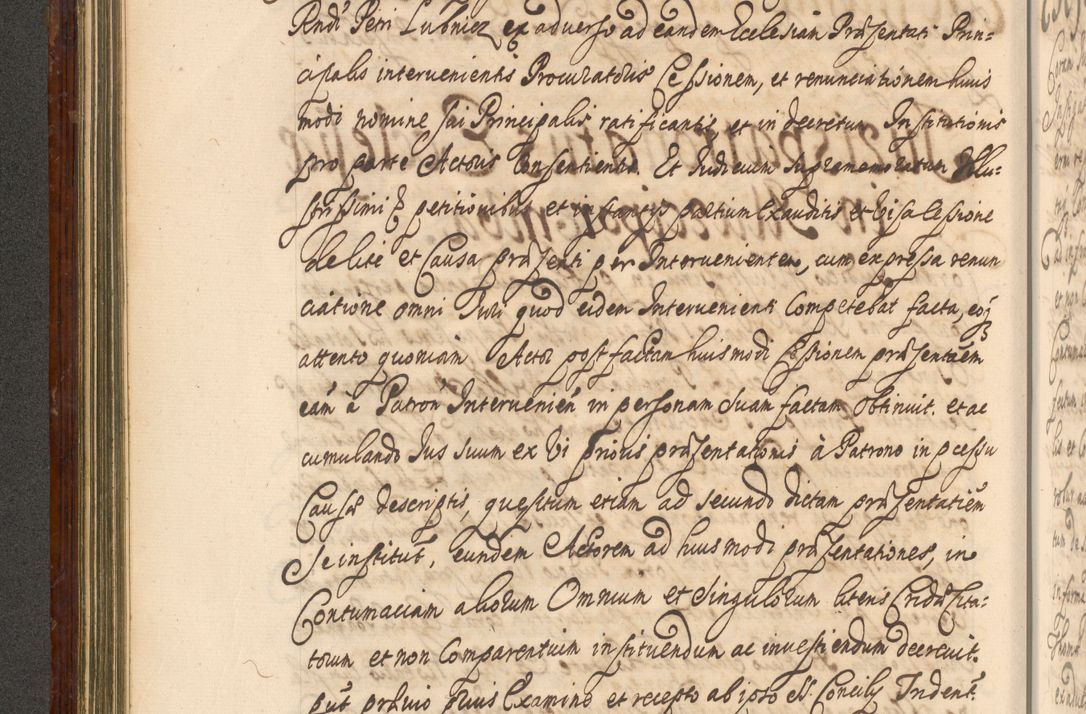 Rndi Petri Lubniez ex adverso ad eandem Ecclesiam Præsentati Prin-
cipalis intervenientis Procuratoris Cessionem, et renunciationem huius
modi nomine sui Principalis ratificantis et in decretum Institutionis
pro parte Actoris Consentientis. Et Judicium supramemoratum Illu-
strissimi petitionibus et instantys partium Exauditis et Visa Cessione
de lite et Causa præsenti per Intervenientem, cum expressa renun
ciatione omni Juri quod eidem Intervenienti Competebat facta, eoq
attento quoniam Actor post factam huiusmodi Cessionem præsentãem
eam à Patron Intervenien in personam suam factam Obtinuit. et ac
cumulando Jus suum ex Vi prioris præsentationis à Patrono in pcessu
Causæ descriptis, quesitum etiam ad secundo dictam præsentatiem
Se instituit, eundem Actorem ad huiusmodi præsentationes, in
Contumaciam aliorum Omnium et Singulorum literis Cridæ Cita-
torum et non Comparentium instituendum ac investiendum decrevit.
put prævio prius Examine et recepto ab ipso S. Concily Trident.